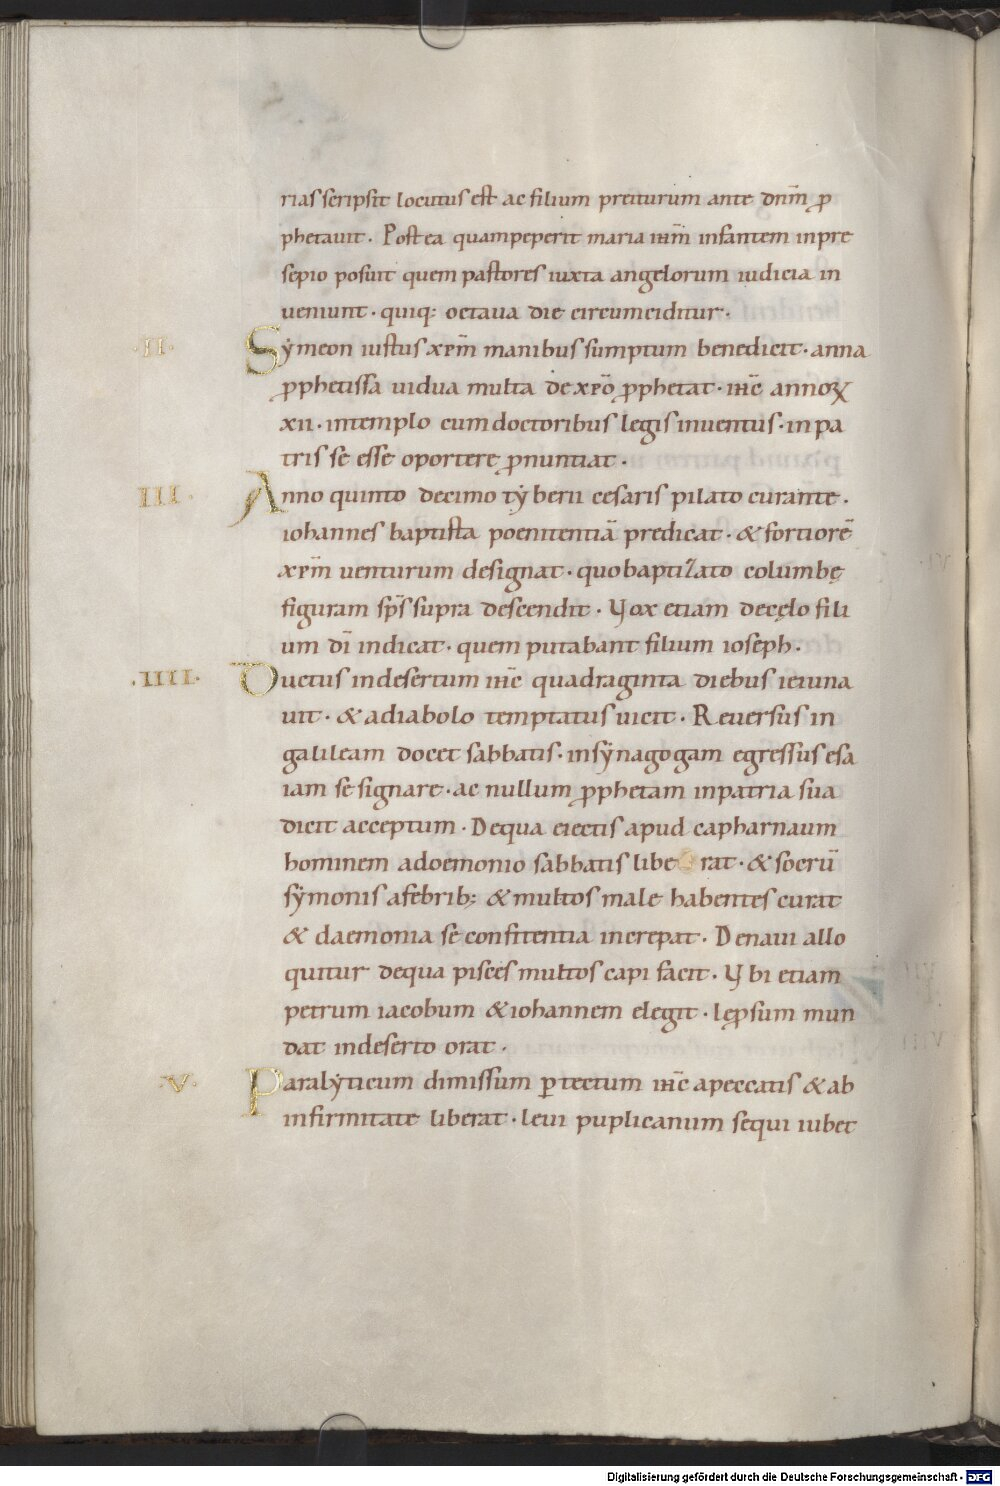 rias scripsit locutus est ac filium preiturum ante dnm̄ p̱
phetauit · Postea quam peperit maria ihm̄ infantem in pre
sepio posuit quem pastores iuxta angelorum iudicia in
ueniunt · quiq; octaua die circumciditur ·
·II· Sẏmeon iustus xp̄m manibus sumptum benedicit · anna
ꝓphetissa uidua multa de xp̄o ꝓphetat · ihc̄ annoꝝ
xii · in templo cum doctoribus legis inuentus · in pa
tris se esse oportere ꝓnuntiat ·
III · Anno quinto decimo tẏberii cesaris pilato curante ·
iohannes baptista poenitentiā predicat · & fortiorē
xp̄m uenturum designat · quo baptizato columbę
figuram sp̄s supra descendit · Vox etiam de cęlo fili
um dī indicat · quem putabant filium ioseph ·
·IIII· Ductus in desertum ihc̄ quadraginta diebus ieiuna
uit · & a diabolo temptatus uicit · Reuersus in
galileam docet sabbatis · in sẏnagogam egressus esa
iam se signare · ac nullum ꝓphetam in patria sua
dicit acceptum · De qua eiectis apud capharnaum
hominem a doemonio sabbatis libe rat · & socrū
sẏmonis a febrib; & multos male habentes curat
& daemonia se confitentia increpat · De naui allo
quitur de qua pisces multos capi facit · Vbi etiam
petrum iacobum & iohannem elegit · leꝓsum mun
dat in deserto orat ·
·V· Paralẏticum dimissum ꝑ tectum ihc̄ a peccatis & ab
infirmitate liberat · leui puplicanum sequi iubet
Digitalisierung gefördert durch die Deutsche Forschungsgemeinschaft - DFG